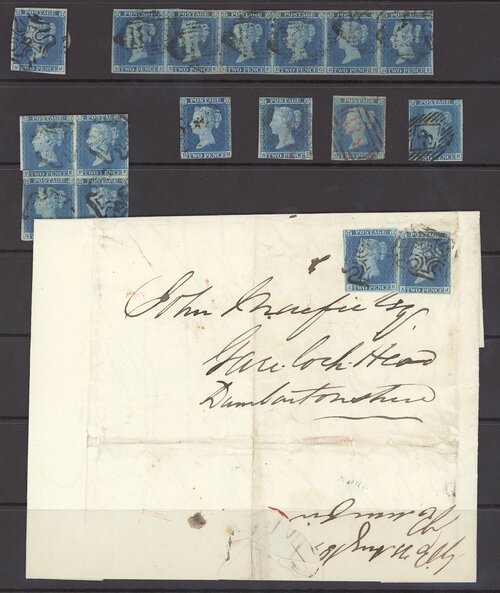 POSTAGE
TWO PENCE
POSTAGE POSTAGE POSTAGE POSTAGE POSTAGE POSTAGE
TWO PENCE TWO PENCE TWO PENCE TWO PENCE TWO PENCE TWO PENCE
POSTAGE POSTAGE POSTAGE POSTAGE
TWO PENCE TWO PENCE TWO PENCE TWO PENCE
POSTAGE POSTAGE
TWO PENCE TWO PENCE
POSTAGE POSTAGE
TWO PENCE TWO PENCE
POSTAGE POSTAGE
TWO PENCE TWO PENCE
John Macfie Esq
Gare Loch Head
Dumbartonshire